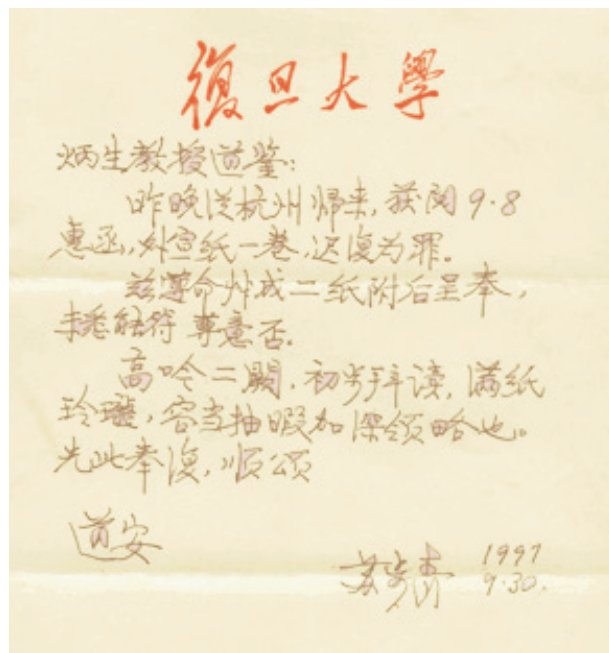 復旦大學
炳生教授道鉴:
昨晚从杭州归来,获阅9.8
惠函,外宣纸一卷,迟复为罪。
兹遵命草成二纸附后呈奉,
未悉能符尊意否。
高吟二阕,初步拜读,满纸
玲珑,容当抽暇加深领略也。
先此奉復,顺颂
道安
苏步青 1997
9.30.